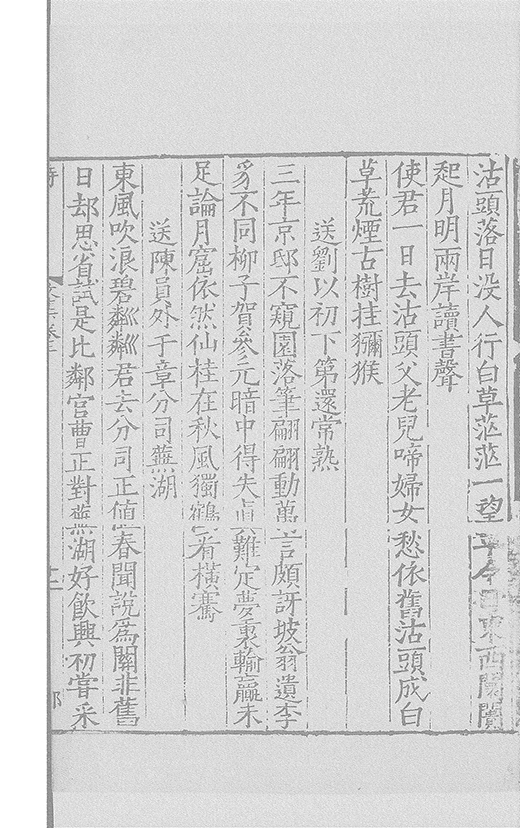 沽頭落日没人行白草茫茫一望平今日東西闤闠
起月明兩岸讀書聲
使君一日去沽頭父老兒啼婦女愁依舊沽頭成白
草荒煙古樹挂獼猴
送劉以初下第還常熟
三年京邸不窺園落筆翩翩動萬言頗訝坡翁遺李
豸不同柳子賀參元暗中得失真難定夢裏輸贏未
足論月窟依然仙桂在秋風獨鶴看橫騫
送陳員外于章分司蕪湖
東風吹浪碧粼粼君去分司正値春聞說爲關非舊
日却思省試是比鄰宮曹正對蕪湖好飲興初嘗采